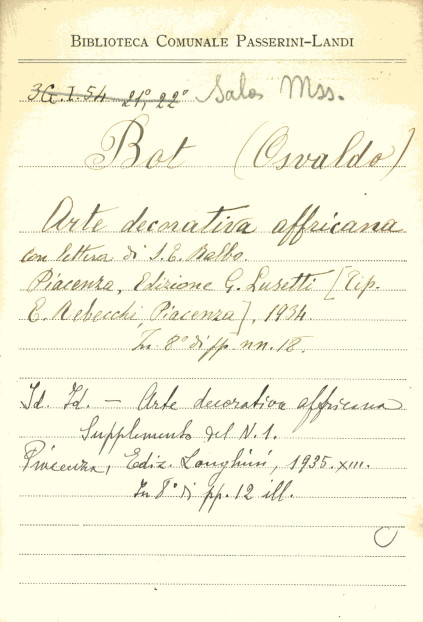 BIBLIOTECA COMUNALE PASSERINI-LANDI
3G.I.54 21°, 22° Sala Mss.
Bot (Osvaldo)
Arte decorativa affricana
con lettera di S.E. Balbo.
Piacenza, Edizione G. Lusetti [Tip.
E. Rebecchi, Piacenza], 1934.
In 8° di pp. nn. 18.
Id. Id. — Arte decorativa affricana
Supplemento del N. 1.
Piacenza, Ediz. Longhini, 1935. XIII.
In 8° di pp. 12 ill.